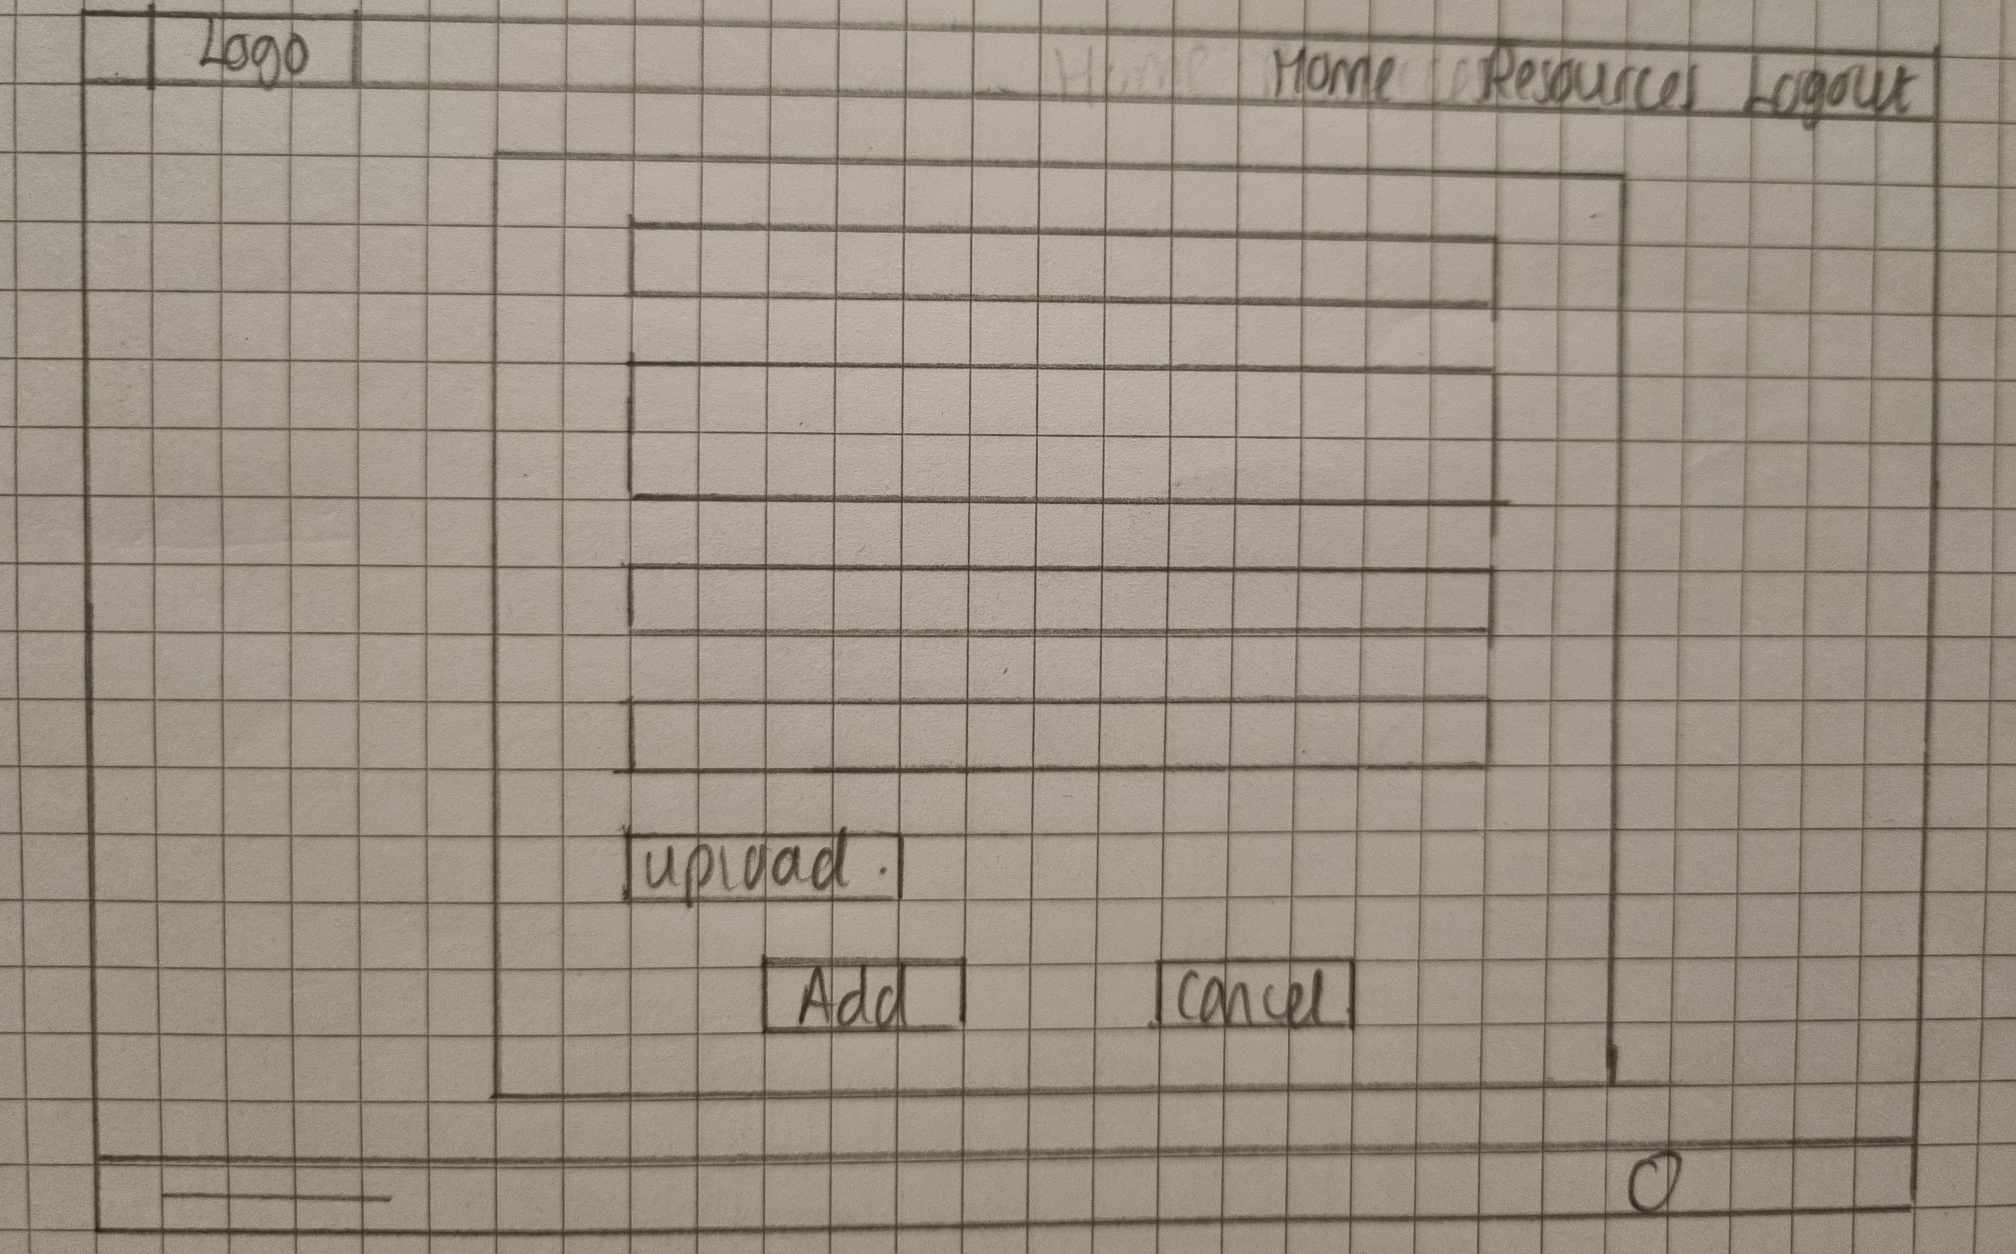 Logo Home Resources Logout
upload
Add Cancel